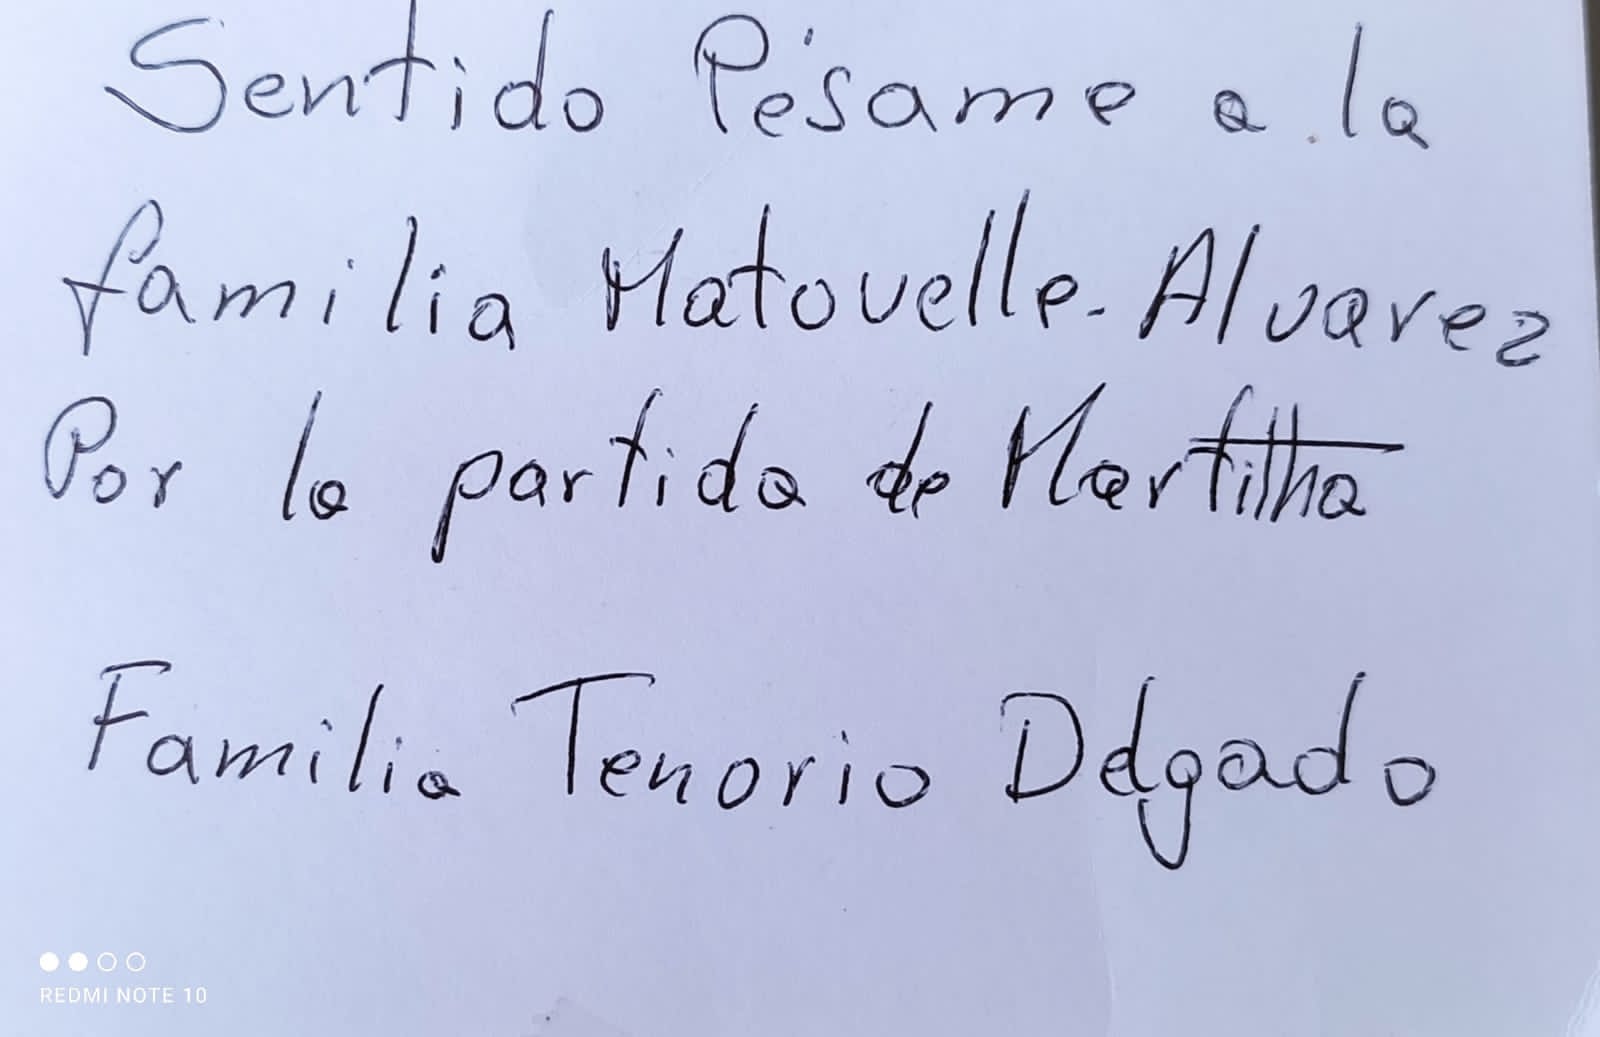 Sentido Pésame a la
familia Matovelle-Alvarez
Por la partida de
Familia Tenorio Delgado
REDMI NOTE 10